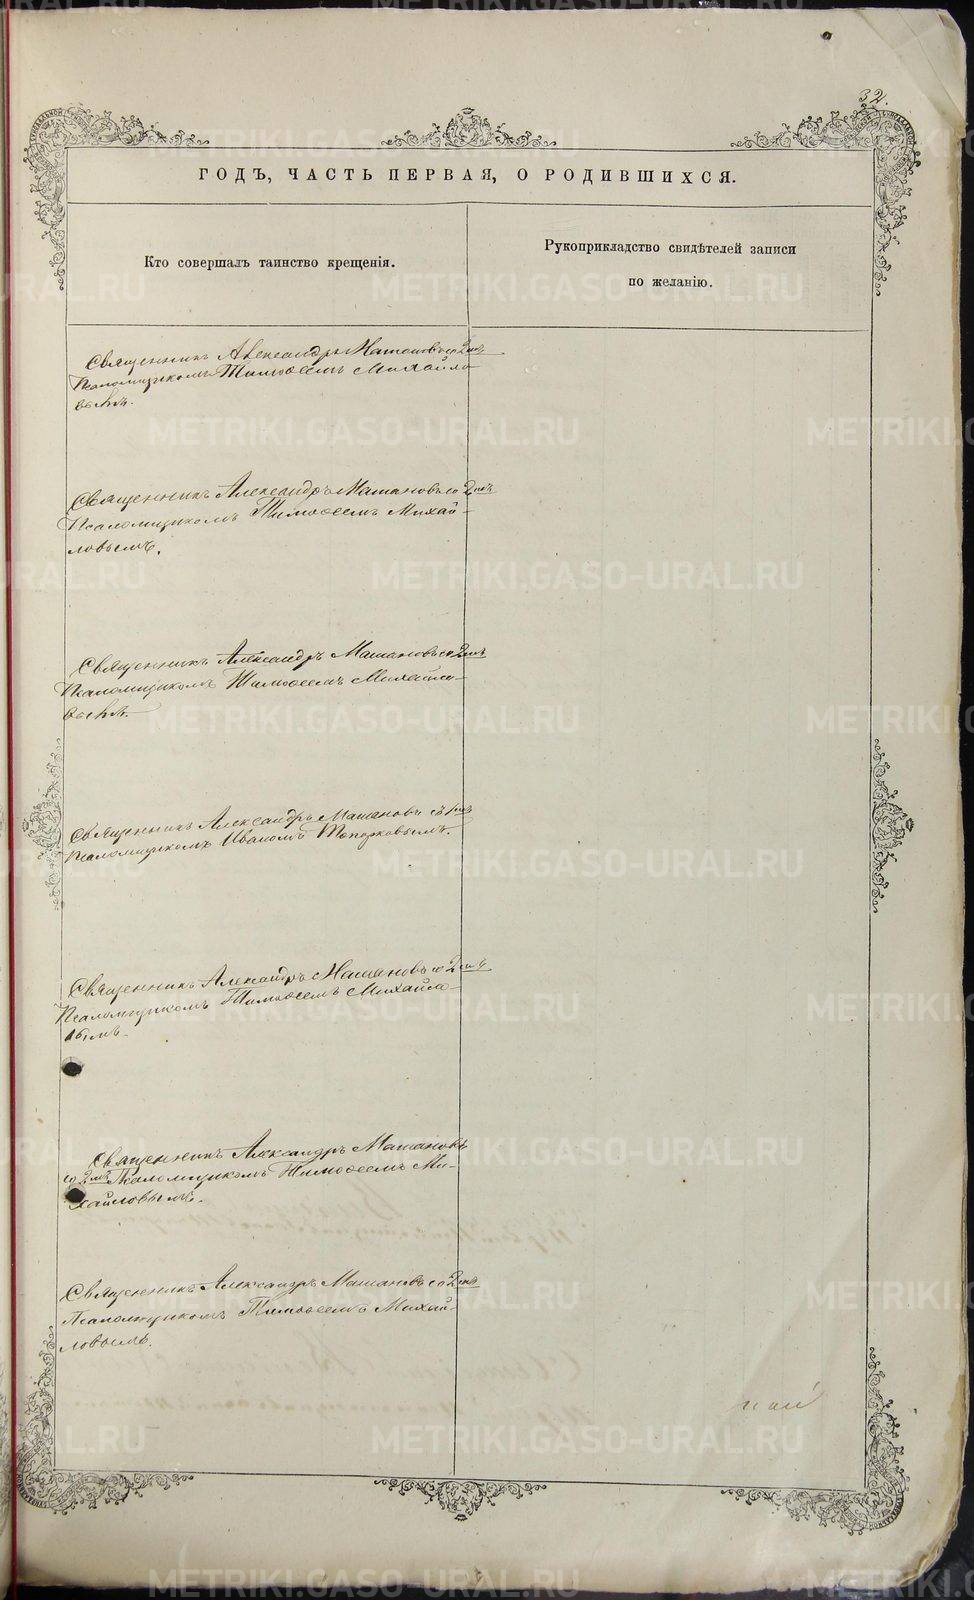 32.
ГОДЪ, ЧАСТЬ ПЕРВАЯ, О РОДИВШИХСЯ.
Кто совершалъ таинство крещенія.
Рукоприкладство свидѣтелей записи
по желанію.
Священникъ Александръ Машановъ со 2мъ
Псаломщикомъ Тимоѳеемъ Михайло-
вымъ.
Священникъ Александръ Машановъ со 2мъ
Псаломщикомъ Тимоѳеемъ Михай-
ловымъ.
Священникъ Александръ Машановъ со 2мъ
Псаломщикомъ Тимоѳеемъ Михайло-
вымъ.
Священникъ Александръ Машановъ съ 1мъ
Псаломщикомъ Иваномъ Топорковымъ.
Священникъ Александръ Машановъ со 2мъ
Псаломщикомъ Тимоѳеемъ Михайло-
вымъ.
Священникъ Александръ Машановъ
со 2мъ Псаломщикомъ Тимоѳеемъ Ми-
хайловымъ.
Священникъ Александръ Машановъ со 2мъ
Псаломщикомъ Тимоѳеемъ Михай-
ловымъ.
METRIKI.GASO-URAL.RU